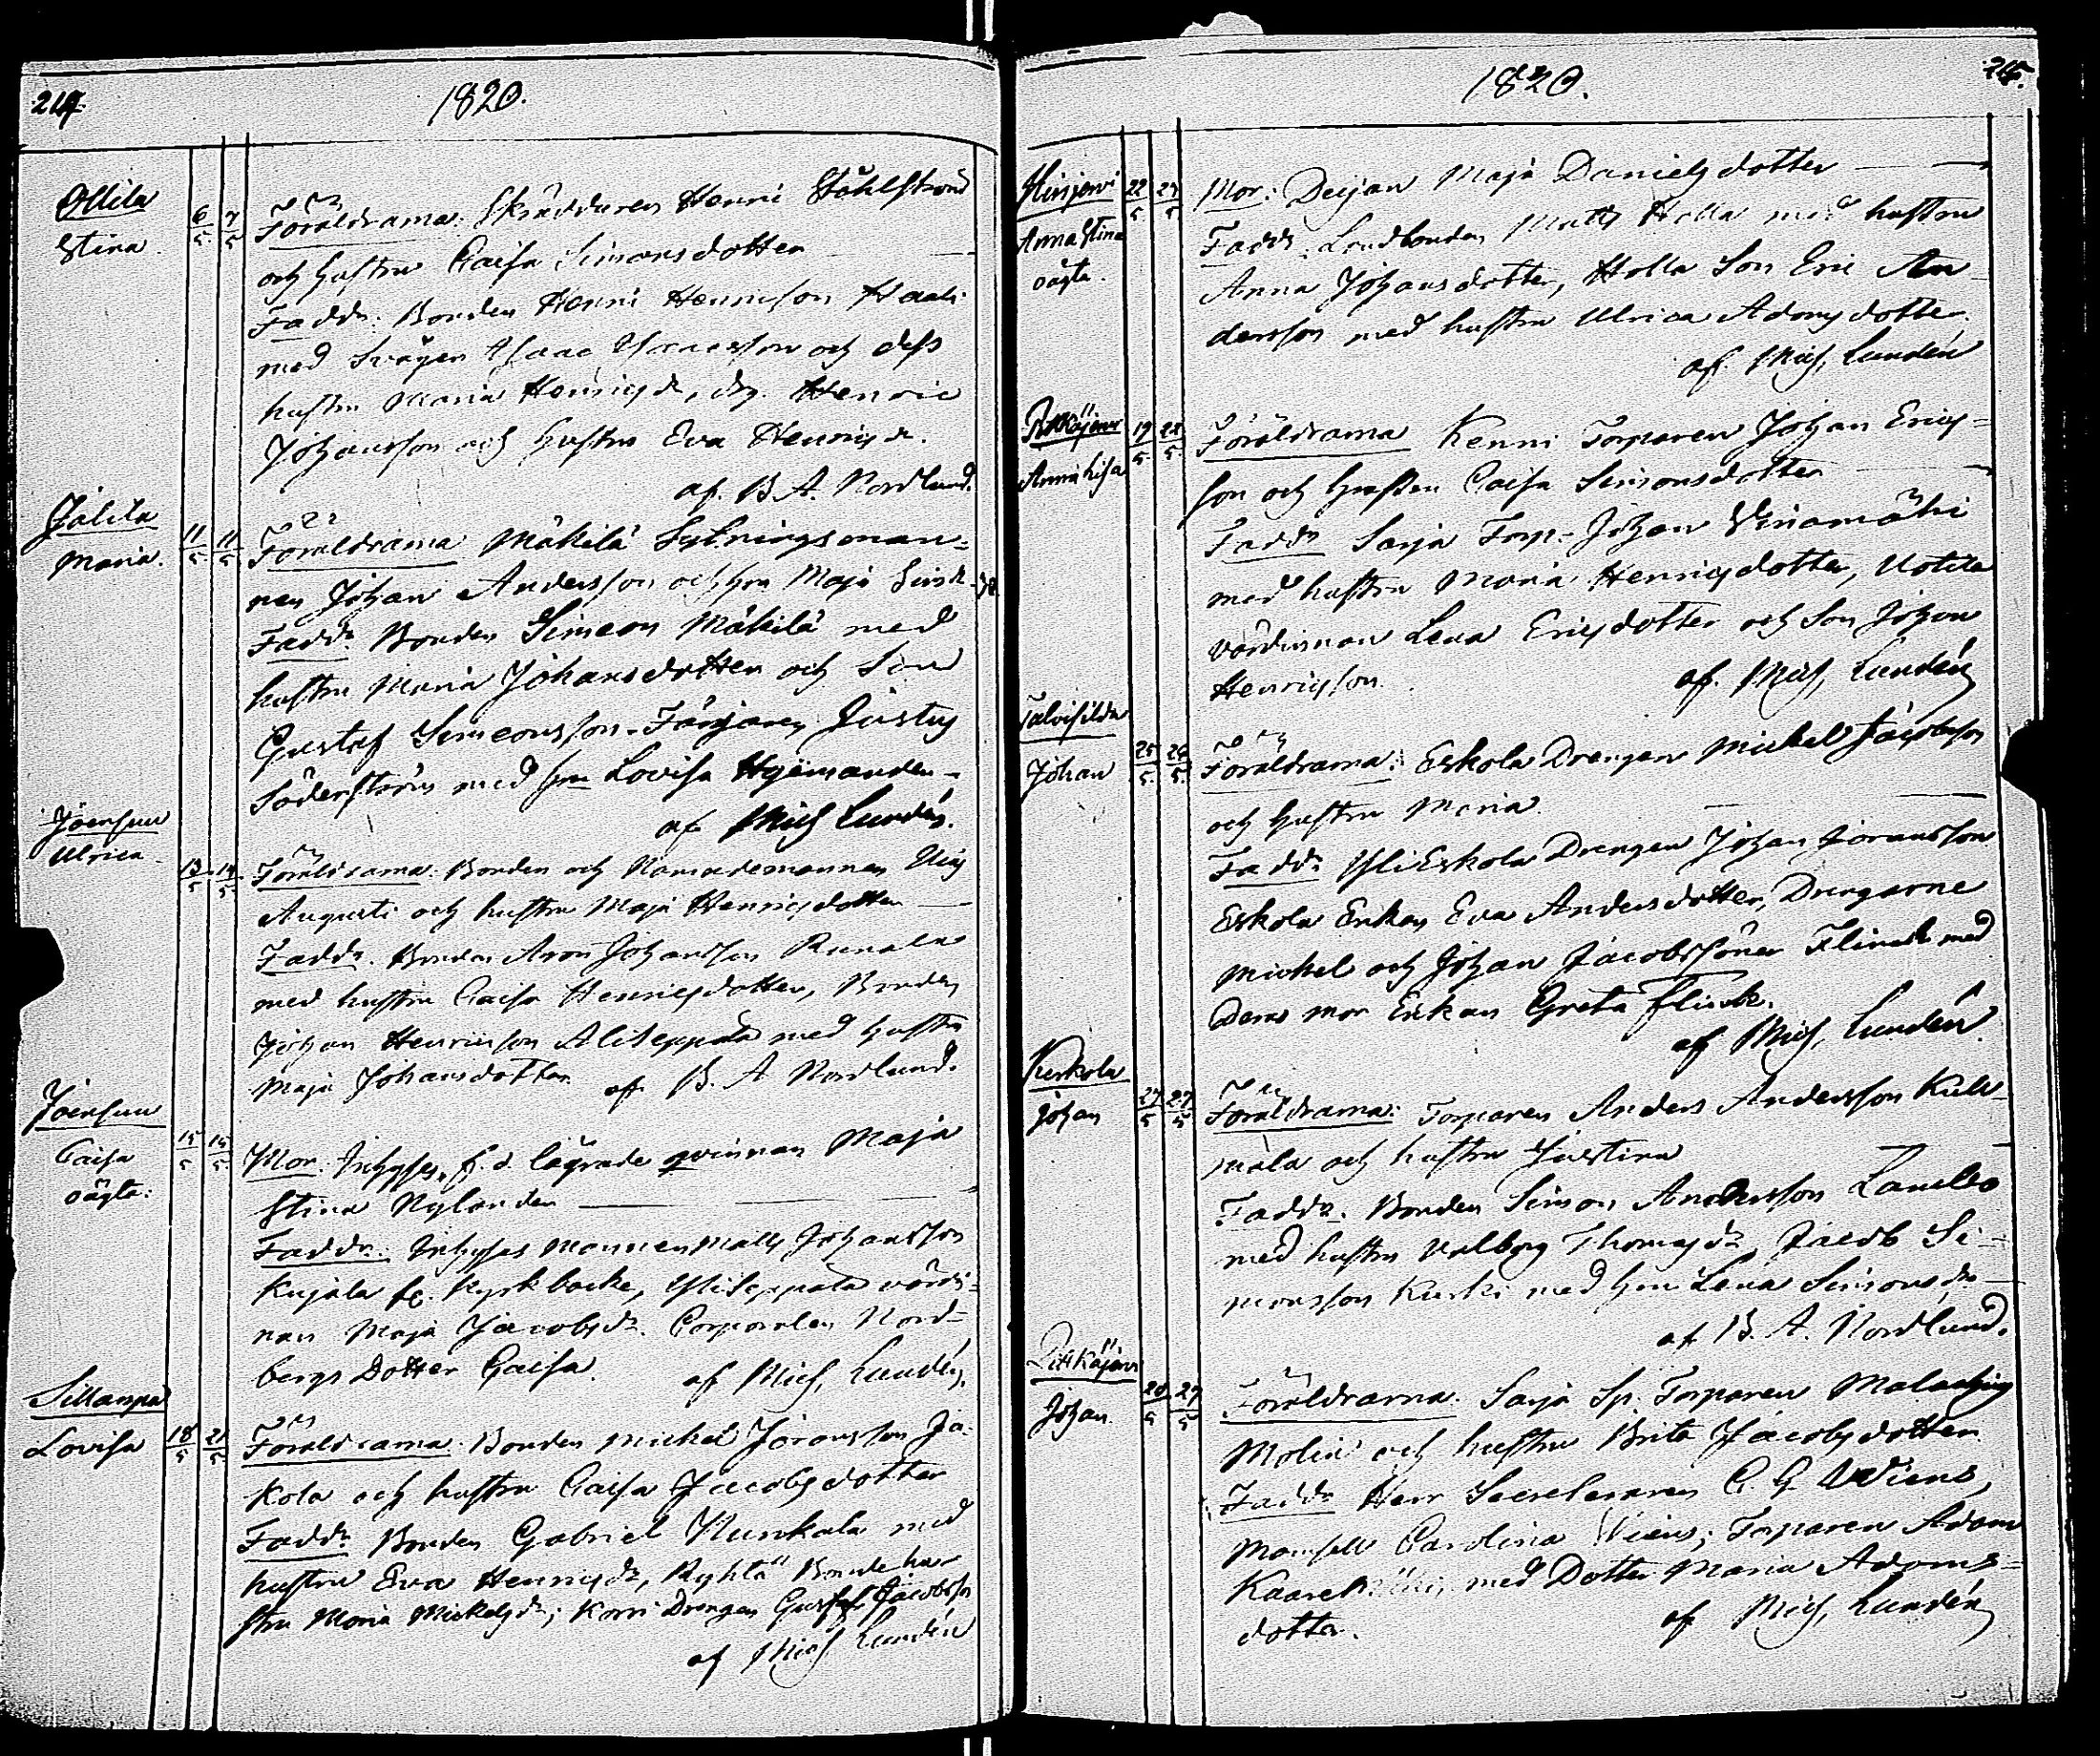 1820.
Ollila
Stina.
6/5 7/5
Föräldrarna: Skräddaren Henric Ståhlström
och hustru Caisa Simonsdotter
Faddr: Bonden Henric Henricsson
med Svågen Isaac Isaacsson och dess
hustru Maria Henricsdr, drg. Henric
Johansson och hustru Eva Henricsdr.
af. B A. Nordlund.
Jalila
Maria.
11/5 11/5
Föräldrarna Mäkilä Sytningsman-
nen Johan Andersson och hru Maja
Faddr. Bonden Simeon Mäkilä med
hustru Maria Johansdotter och Son
Gustaf Simeonsson. Färjaren Justus
Söderström med hru Lovisa
af Mich Lundén.
Joensuu
Ulrica
13/5 14/5
Föräldrarna. Bonden och Nämndemannen
Augusti och hustru Maja Henricsdotter
Faddr. Bonden Aron Johansson
med hustru Caisa Henricsdotter, Bonden
Johan Henricsson Aliseppälä med hustru
Maja Johansdotter af B. A Nordlund.
Joensuu
Caisa
oägta:
15/5 15/5
Mor: Inhyses, f. d. lägrade qvinnan Maja
Stina Nylander
Faddr: Inhyses Mannen Matts Johansson
Kujala fr. Kyrkbacke, Yliseppälä värdi-
nan Maja Jacobsdr. Corporalen Nord-
bergs Dotter Caisa. af Mich, Lundén.
Sillanpää
Lovisa
18/5 21/5
Föräldrarna. Bonden Michel Göransson Ja-
kola och hustru Caisa Jacobsdotter
Faddr. Bonden Gabriel Nunkala med
hustru Eva Henricsdr, Ryhtä Bonde hu-
stru Maria Michelsdr; Korri Drengen Gustaf Jacobsson
af Mich Lundén
1820.
Hirsjervi
Anna Stina
oägta.
22/5
Mor: Deijan Maja Danielsdotter
Faddr: Landbonden Matts Holla med hustru
Anna Johansdotter, Holla Son Eric An
dersson med hustru Ulrica Adamsdotter.
af. Mich, Lundén
Pitkäjerwi
Anna Lisa
19/5 22/5
Föräldrarna Kenni Torparen Johan Erics-
son och hustru Caisa Simonsdotter
Faddr Sarja Torp. Johan
med hustru Maria Henricsdotter, Uotila
värdinnan Lena Ericsdotter och Son Johan
Henricsson.
af. Mich, Lundén
Talvisilda
Johan
25/5 26/5
Föräldrarna: Eskola Drengen Michel Jacobsson
och hustru Maria
Faddr YliEskola Drengen Johan Göransson
Eskola Enkan Eva Andersdotter, Drengarne
Michel och Johan Jacobssöner Flinck med
Deras mor Enkan Greta Flinck.
af Mich, Lundén
Kurkola
Johan
27/5 27/5
Föräldrarna: Torparen Anders Andersson
och hustru Justina
Faddr. Bonden Simon Andersson
med hustru Valborg Thomasdr, Jacob Si-
monsson Kurki med hru Lena Simonsdr
af B. A. Nordlund.
Pitkäjerwi
Johan.
28/5 29/5
Föräldrarna. Sarja Sp. Torparen Malachias
Molin och hustru Brita Jacobsdotter
Faddr Herr Secreteraren C. G. Wiens,
Mamsell Carolina Wiens; Torparen Adam
med Dotter Maria Adams-
dotter. af Mich, Lundén